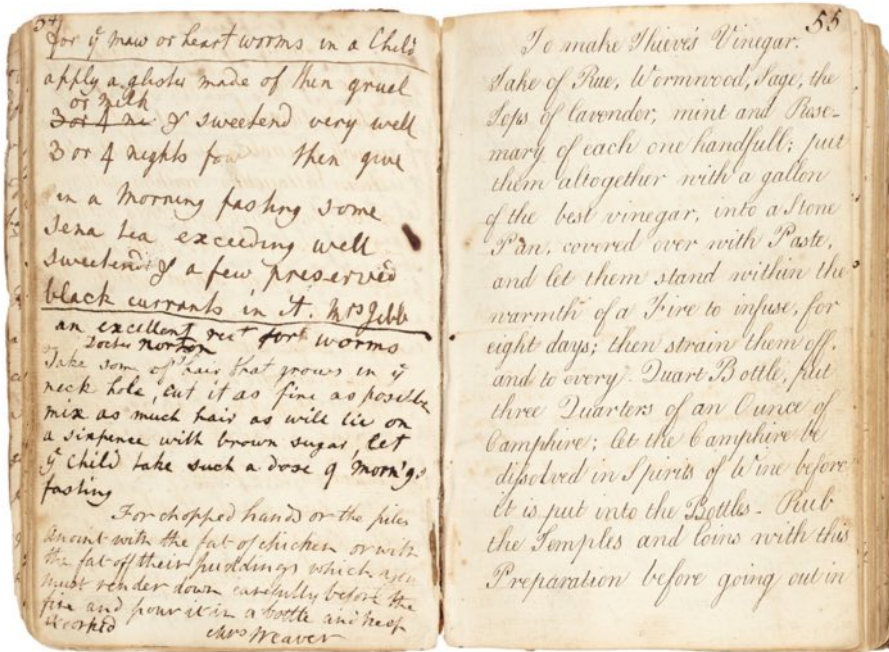 54
for ÿ maw or heart worms in a Child
apply a glister made of thin gruel
or milk
3 or 4 ni & sweetend very well
3 or 4 nights then give
in a Morning fasting some
Sena tea exceeding well
sweetend & a few preserved
black currants in it. Mrs Jebb
an excellent rect for worms
Docter Norton
Take some of hair that grows in ÿ
neck hole, cut it as fine as possible
mix as much hair as will lie on
a sixpence with brown sugar, let
ÿ Child take such a dose 9 morn'gs
fasting
For chopped hands or the piles
anoint with the fat of chicken or with
the fat off their puddings which you
must render down carefully before the
fire and pour it in a bottle and keep
it corked Mrs Weaver
55
To make Thieve's Vinegar.
Take of Rue, Wormwood, Sage, the
Tops of lavender, mint and Rose-
mary of each one handfull; put
them altogether with a gallon
of the best vinegar, into a Stone
Pan, covered over with Paste,
and let them stand within the
warmth of a Fire to infuse, for
eight days; then strain them off,
and to every Quart Bottle, put
three Quarters of an Ounce of
Camphire; let the Camphire be
dissolved in Spirits of Wine before
it is put into the Bottles - Rub
the Temples and Loins with this
Preparation before going out in